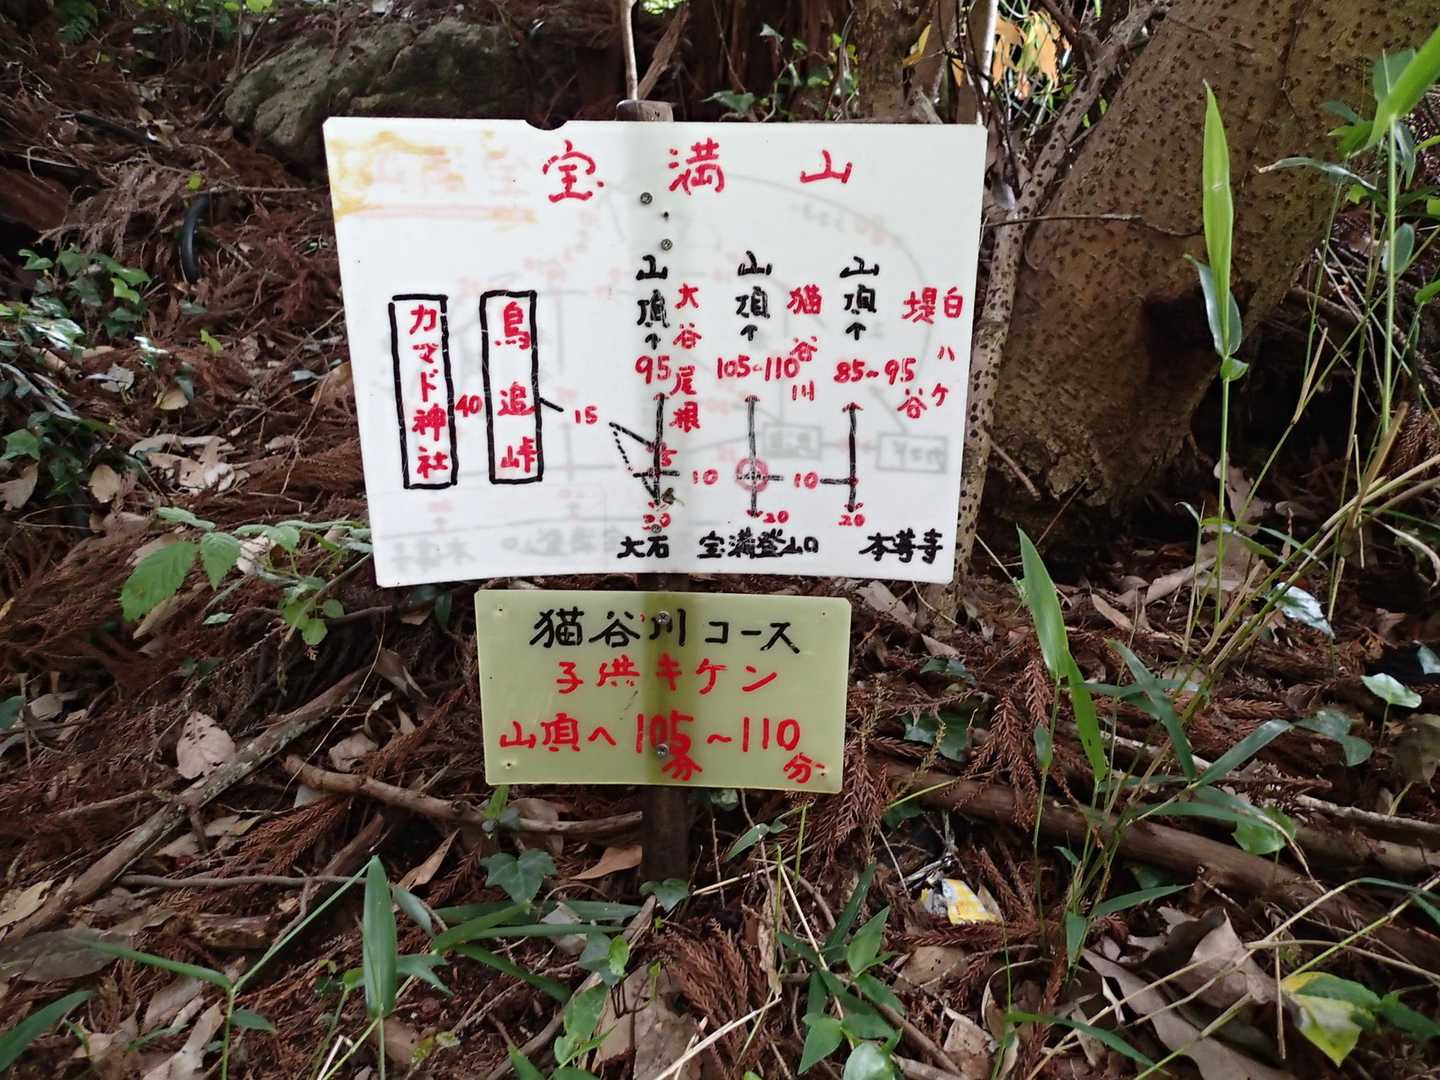 宝満山
カマド神社
40
鳥追峠
15
山頂↑
95
大谷尾根
山頂↑
105~110
猫谷川
山頂↑
85~95
堤谷
白ハケ
5
10
10
20
20
大石
宝満登山口
本尊寺
猫谷川コース
子供キケン
山頂へ105分~110分